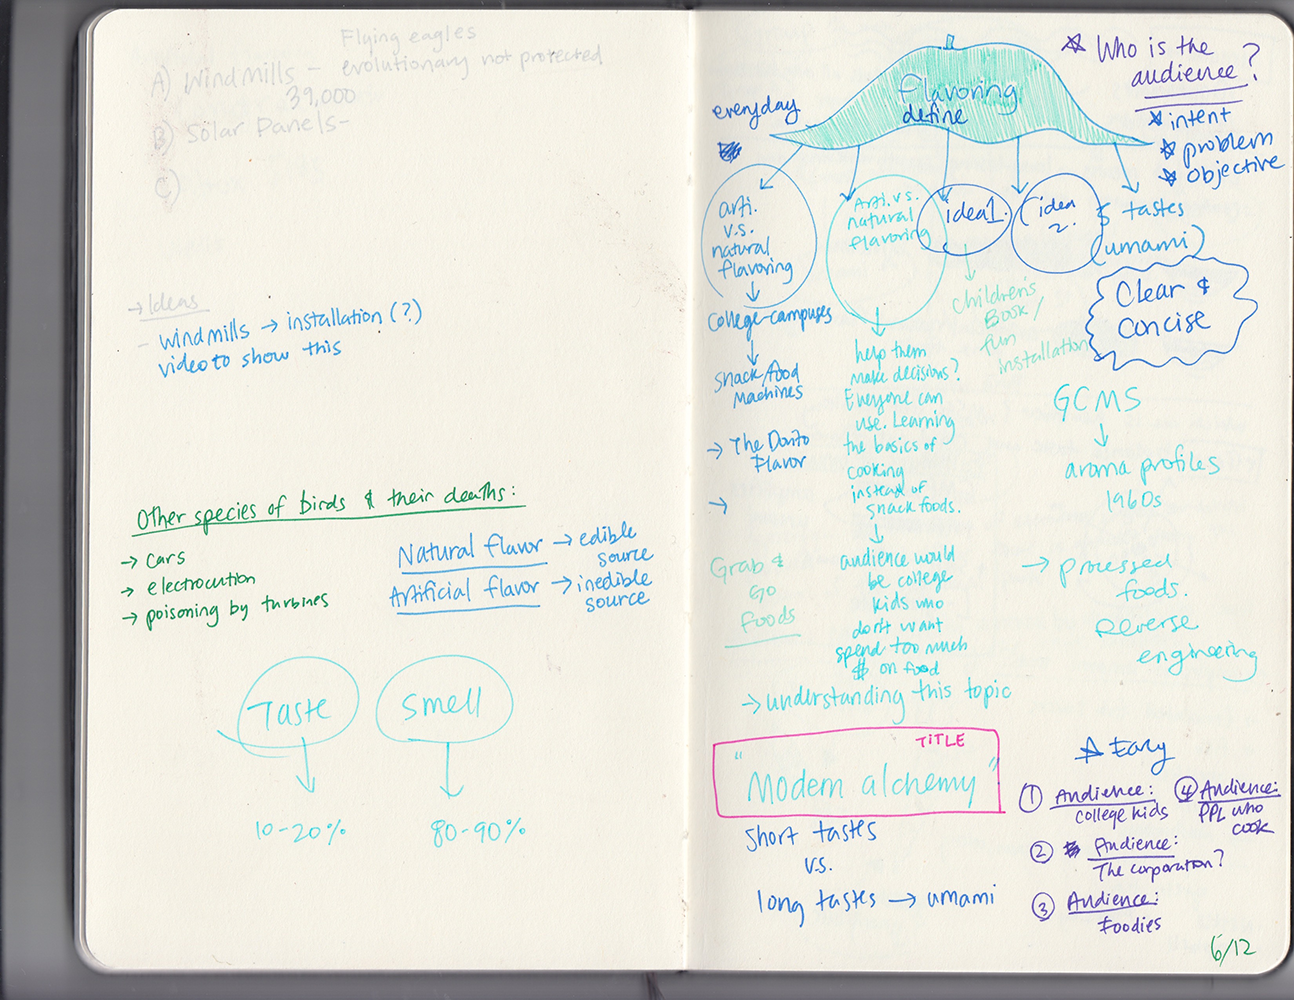 Flying eagles
A) Windmills – evolutionary not protected
39,000
B) Solar Panels-
C)
→ Ideas
- windmills → installation (?)
video to show this
Other species of birds & their deaths:
→ cars
→ electrocution
→ poisoning by turbines
Natural flavor → edible
source
Artificial flavor → inedible
source
Taste
Smell
10-20%
80-90%
Flavoring
define
everyday
★ Who is the
audience?
★ intent
★ problem
★ objective
arti.
v.s.
natural
flavoring
↓
college-campuses
↓
snack/food
Machines
→ The Dorito
Flavor
→
Grab &
Go
Foods
Arti. vs.
natural
flavoring
↓
help them
make decisions?
Everyone can
use. Learning
the basics of
cooking
instead of
snack foods.
↓
audience would
be college
kids who
don't want
spend too much
$ on food
→ understanding this topic
idea 1.
↓
children's
Book/
fun
installation
idea
2.
5 tastes
(umami)
Clear &
concise
GCMS
↓
aroma profiles
1960s
→ processed
foods.
Reverse
engineering
TITLE
"Modern alchemy"
short tastes
v.s.
long tastes → umami
① Audience:
college kids
② Audience:
The corporation?
③ Audience:
Foodies
④ Audience:
PPL who
cook
6/12